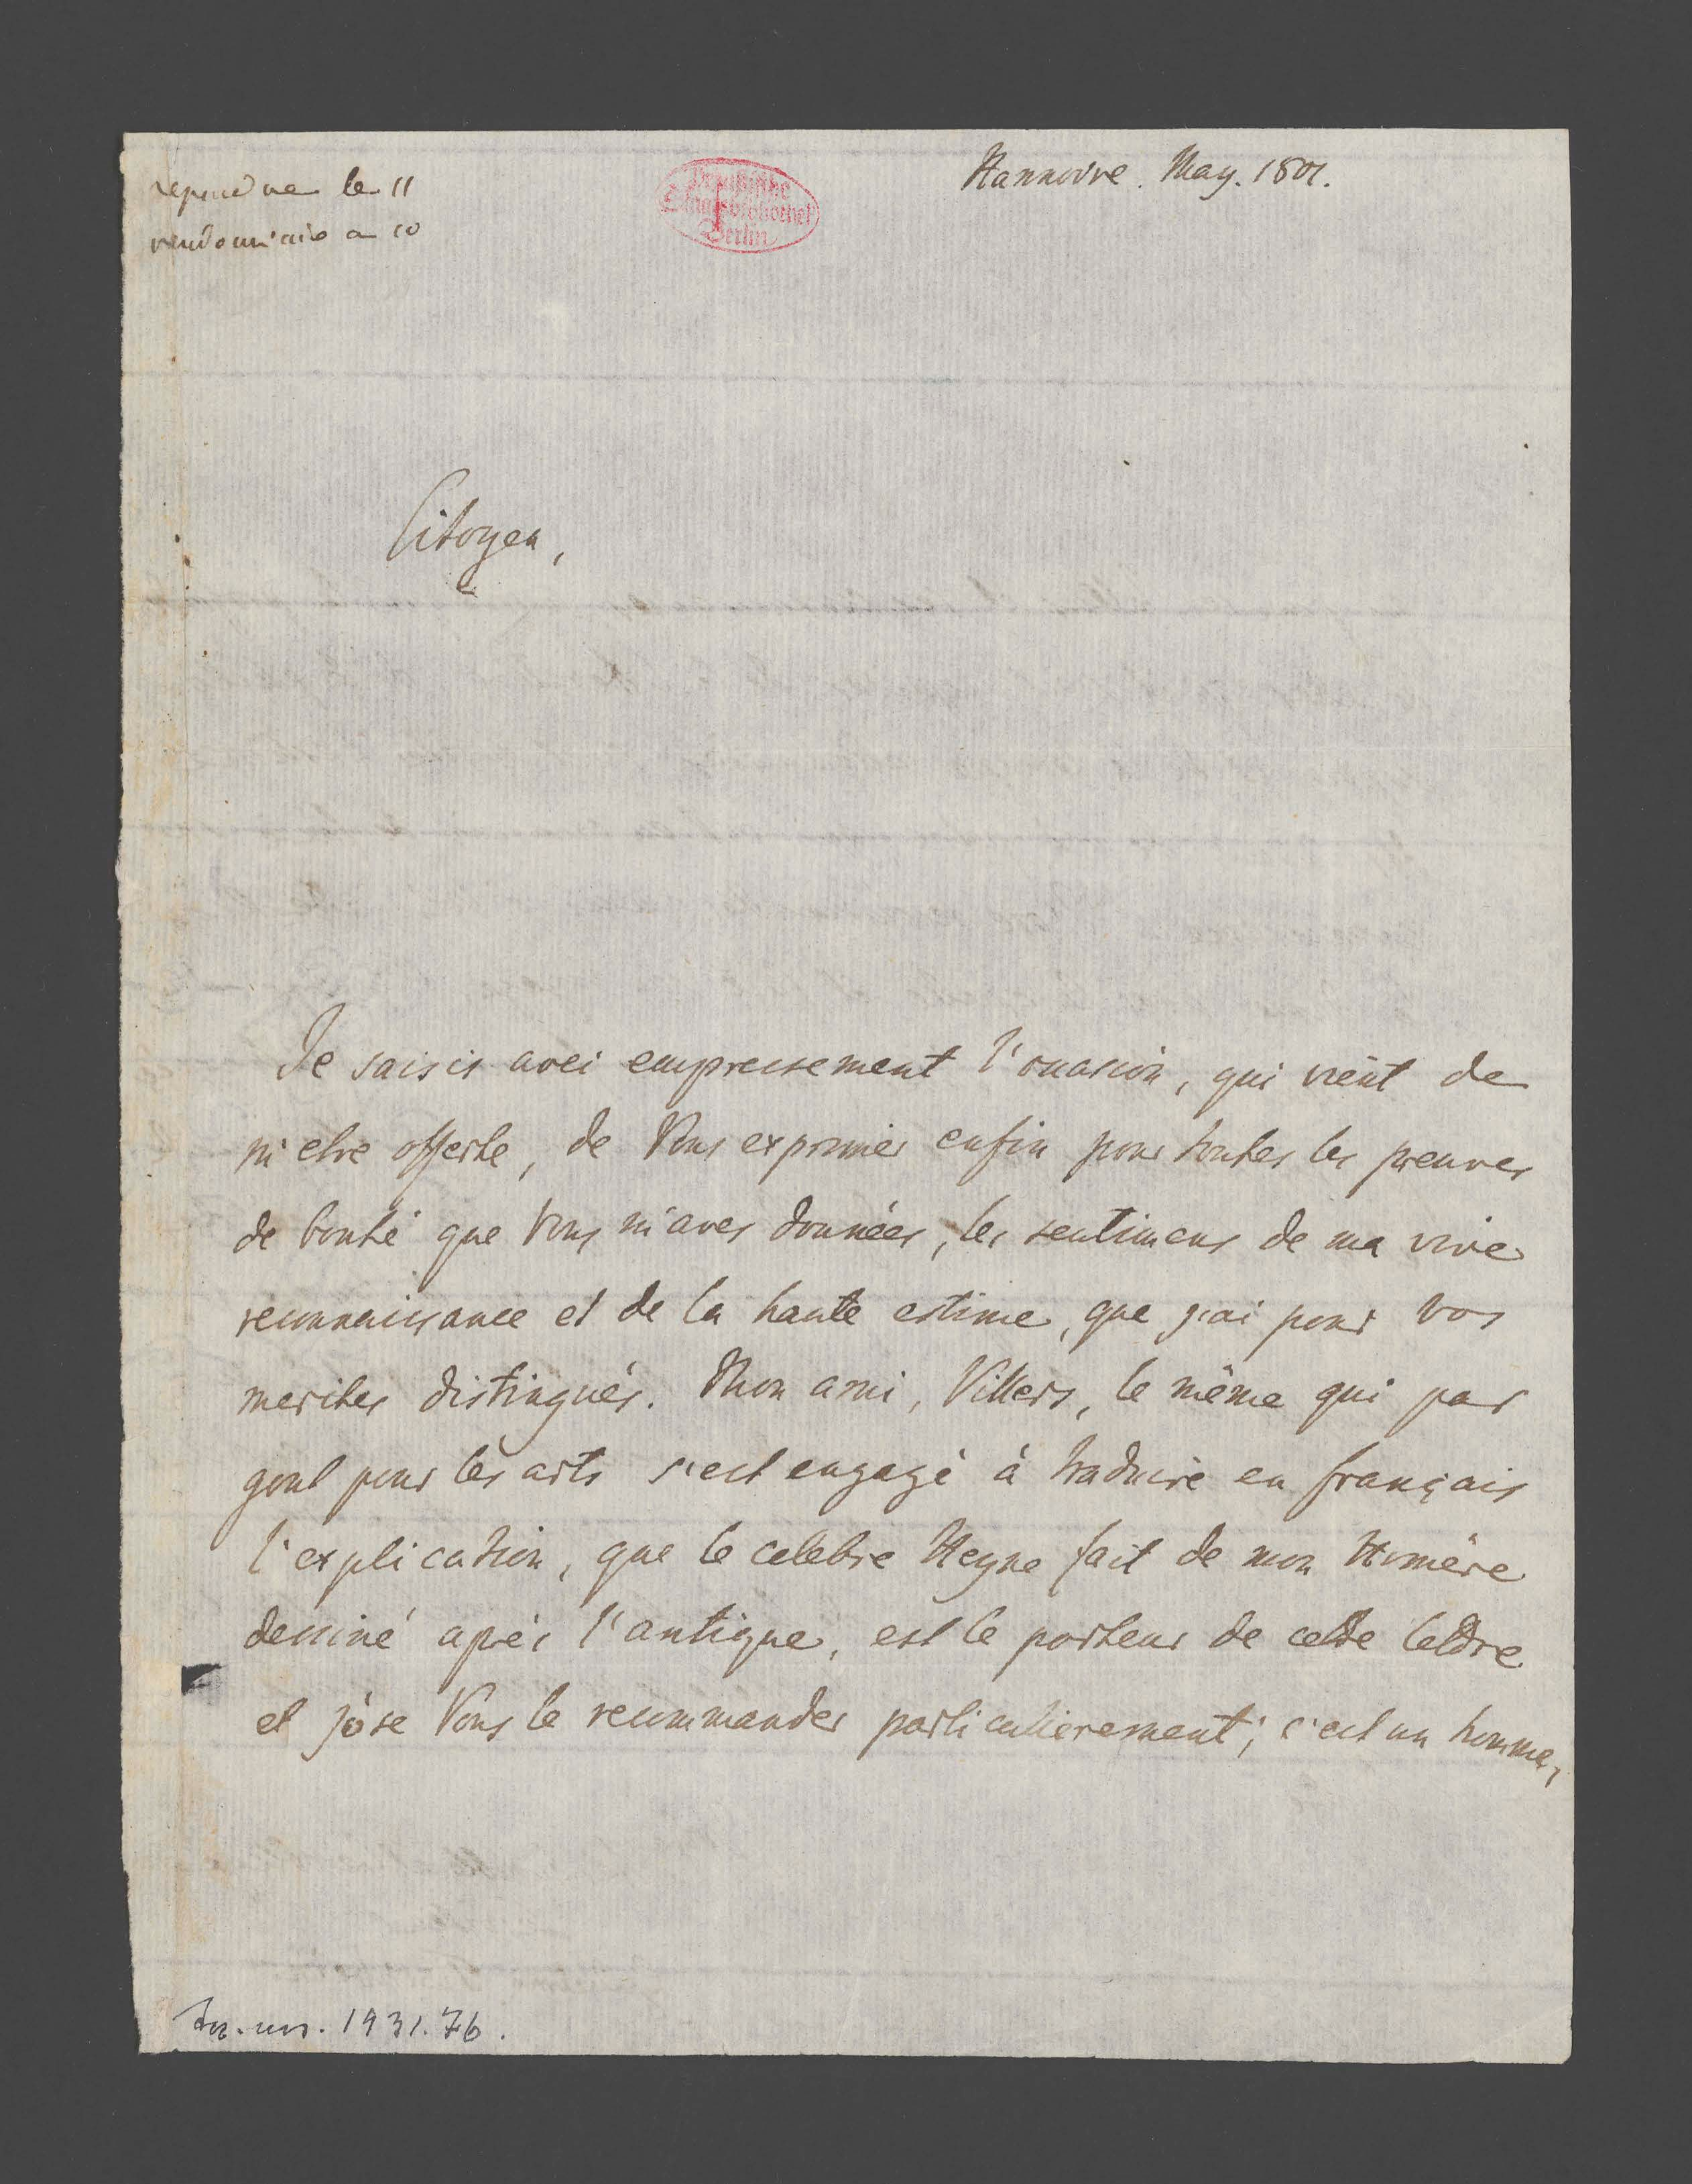 repondre le 11
vendemiaire an 10
Preußische
Staatsbibliothek
Berlin
Hannovre. May. 1801.
Citoyen,
Je saisis avec empressement l'occasion, qui vient de
m'etre offerte, de Vous exprimer enfin pour toutes les preuves
de bonté que Vous m'aves données, les sentimens de ma vive
reconnaissance et de la haute estime, que j'ai pour vos
merites distingués. Mon ami, Villers, le même qui par
gout pour les arts s'est engagé à traduire en français
l'explication, que le celebre Heyne fait de mon Homère
dessiné après l'antique, est le porteur de cette lettre
et j'ose Vous le recommander particulierement; c'est un homme,
1931.76.